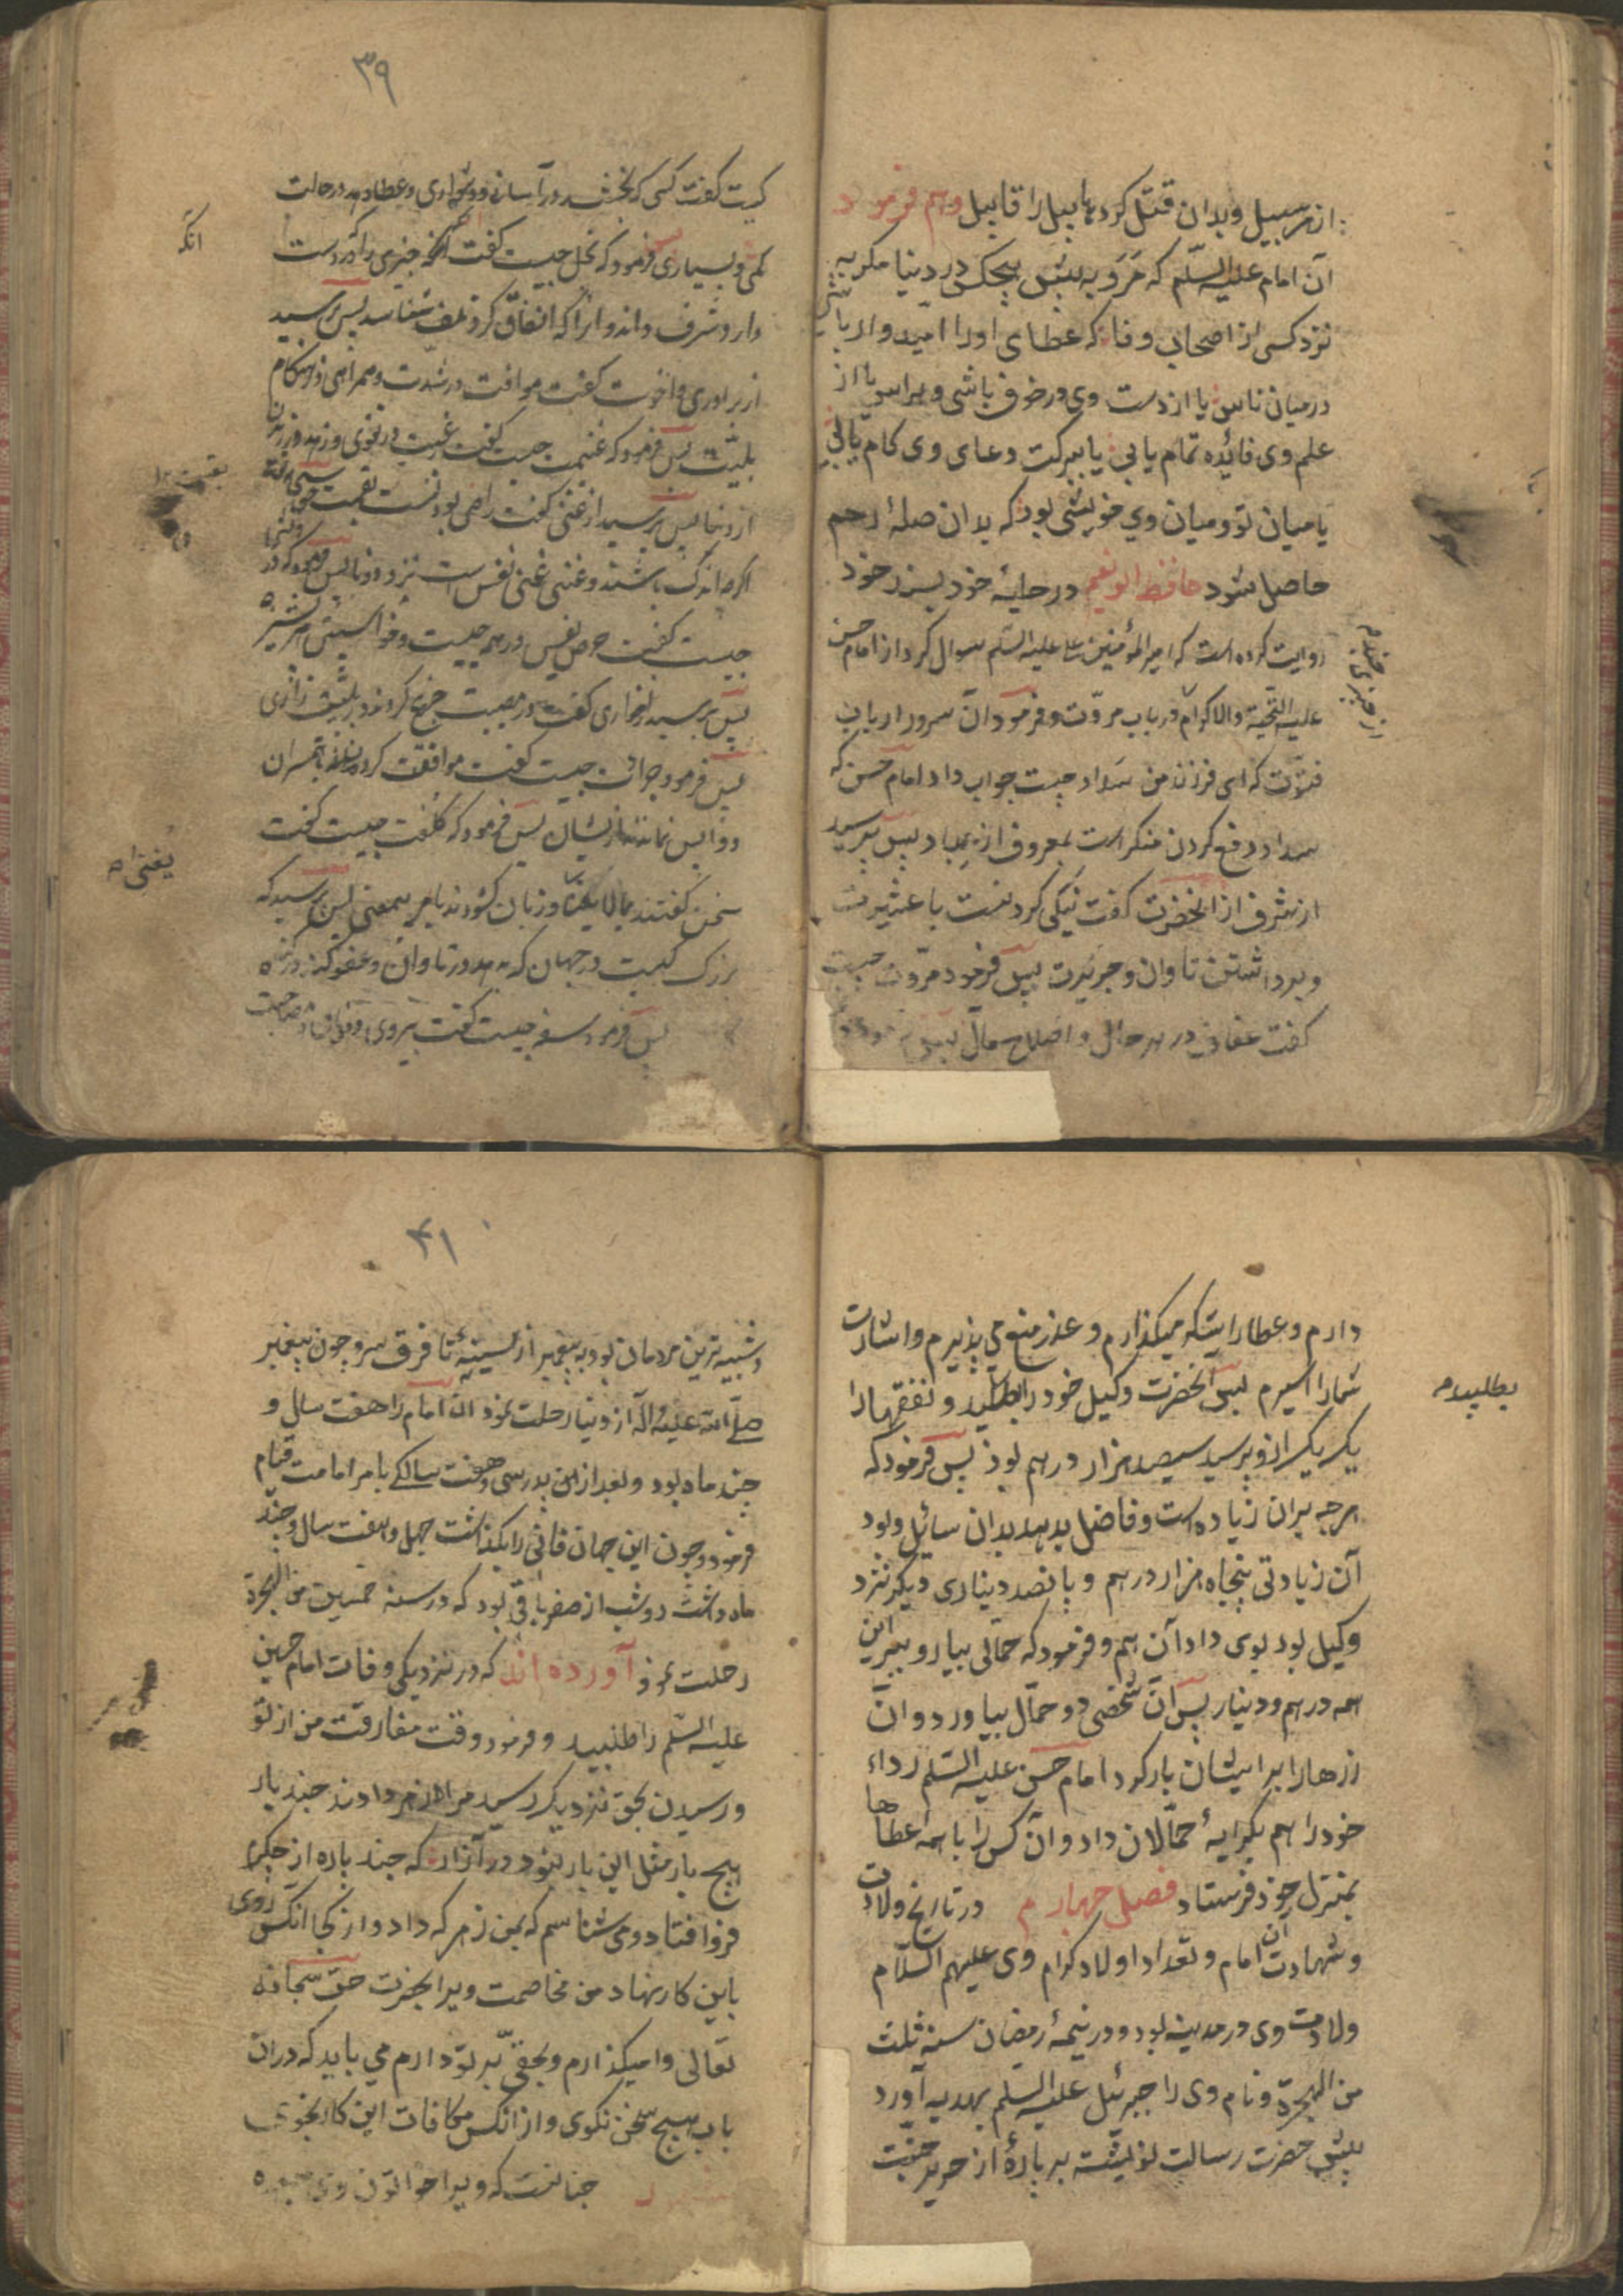 از هر سبیل و بدان قتل کرد هابیل را قابیل وهم فرمود
آن امام علیه السلم که مَرَو به پیش هیچکس در دنیا مکر به
نزد کسی از اصحاب وفا که عطای او را امّیدوار باشی
در میان ناس یا از دست وی در خوف باشی و هراس یا از
علم وی فائده تمام یابی یا ببرکت دعای وی کام یابی
یا میان تو و میان وی خویشی بود که بدان صلهٔ رحم
حاصل شود حافظ ابونعیم در حلیهٔ خود بسند خود
روایت کرده است که امیر المؤمنین علی علیه السلم سوال کرد از امام حسن
علیه التحیة والاکرام در باب مروّت و فرمود آن سرور ارباب
فتوّت که ای فرزند من سداد چیست جواب داد امام حسن که
سداد دفع کردن منکر است بمعروف از عباد پس پرسید
از شرف از انحضرت گفت نیکی کردنست با عشیرت
و برداشتن تاوان و جریرت پس فرمود مروّت چیست
گفت عفاف در هر حال و اصلاح مال پس
۳۹
کیست گفت کسی که بخشد در آسانی و دشواری و عطا دهد در حالت
کمی و بسیاری پس فرمود که بخل چیست گفت آنکه چیزی را که در دست
انکه
دارد شرف داند و انرا که انفاق کرد تلف شناسد پس پرسید
از برادری و اخوت گفت موافقت در شدّت و همراهی در هنگام
بلیّت پس فرمود که غنیمت چیست گفت رغبت در تقوی و زهد ورزیدن
از دنیا پس پرسید از غنی گفت راضی بودنست بقسمت حق
اگرچه اندک باشد و غنی غنی نفس است نزد دونا پس فرمود که فقر
چیست گفت حرص نفس در همه چیست
پس پرسید از خواری گفت در مصیبت جزع کردن و بر بلیّت زاری
پس فرمود جرات چیست گفت موافقت کردن با همسران
و واپس نماندن از یشان پس فرمود که کلفت چیست گفت
سخن گفتند بمالا یعنی و زبان گشودند بامر بیمعنی پس پرسید که
بزرک کیست در جهان که بدهد در تاوان و عفو کند در گناه
پس فرمود سفه چیست گفت پیروی
دارم و عطا رایتکه میگذارم و عذر منع می پذیرم و اشارت
شما را اسیرم پس انحضرت وکیل خود را بطلبید و نفقه ها را
بطلبید
یک یک از و پرسید سیصد هزار درهم بود پس فرمود که
هرچه بران زیاده است و فاضل بدهد بدان سائل و بود
آن زیادتی پنجاه هزار درهم و پانصد دیناری دیکر نزد
وکیل بود بوی داد آن هم و فرمود که حمّالی بیار و ببر این
همه درهم و دینار پس آن شخص دو حمّال بیاورد و آن
زرها را بر ایشان بار کرد امام حسن علیه السّلم رداء
خود را هم بکرایهٔ حمّالان داد و آن کس را با همه عطاها
بمنزل خود فرستاد فصل چهارم در تاریخ ولادت
و شهادت آن امام و تعداد اولاد کرام وی علیهم السلام
ولادت وی در مدینه بود و در نیمهٔ رمضان سنه ثلث
من الهجرة و نام وی را جبرئیل علیه السلم بهدیه آورد
پیش حضرت رسالت نوشته بر پارهٔ از حریر جنّت
۴۱
و شبیه ترین مردمان بود به پیغمبر از سینه تا فرق سر و چون پیغمبر
صلّی الله علیه و آله از دنیا رحلت نمود ان امام را هفت سال و
چند ماه بود و بعد از این پدر سی و هفت سالکی بامر امامت قیام
فرمود و چون این جهان فانی را بکذاشت چهل و هفت سال و چند
ماه داشت دو شب از صفر باقی بود که در سنه خمسین من الهجرة
رحلت نمود آورده اند که در نزدیکی وفات امام حسین
علیه السّلم را طلبید و فرمود وقت مفارقت من از تو
و رسیدن بحق نزدیک رسید مرا زهر دادند چند بار
هیچ بار مثل این بار نبود در آزار که چند پاره از جکرم
فرو افتاد و می شناسم که بمن زهر که داد و از کجا انکس روی
باین کار نهاد من مخاصمت ویرا بحضرت حق سبحانه
تعالی وا میگذارم و بحقی بر تو دارم می باید که در ان
باب هیچ سخن نکوی و از انکس مکافات این کار نجوی
چنانست که ویرا خواتون وی جعده